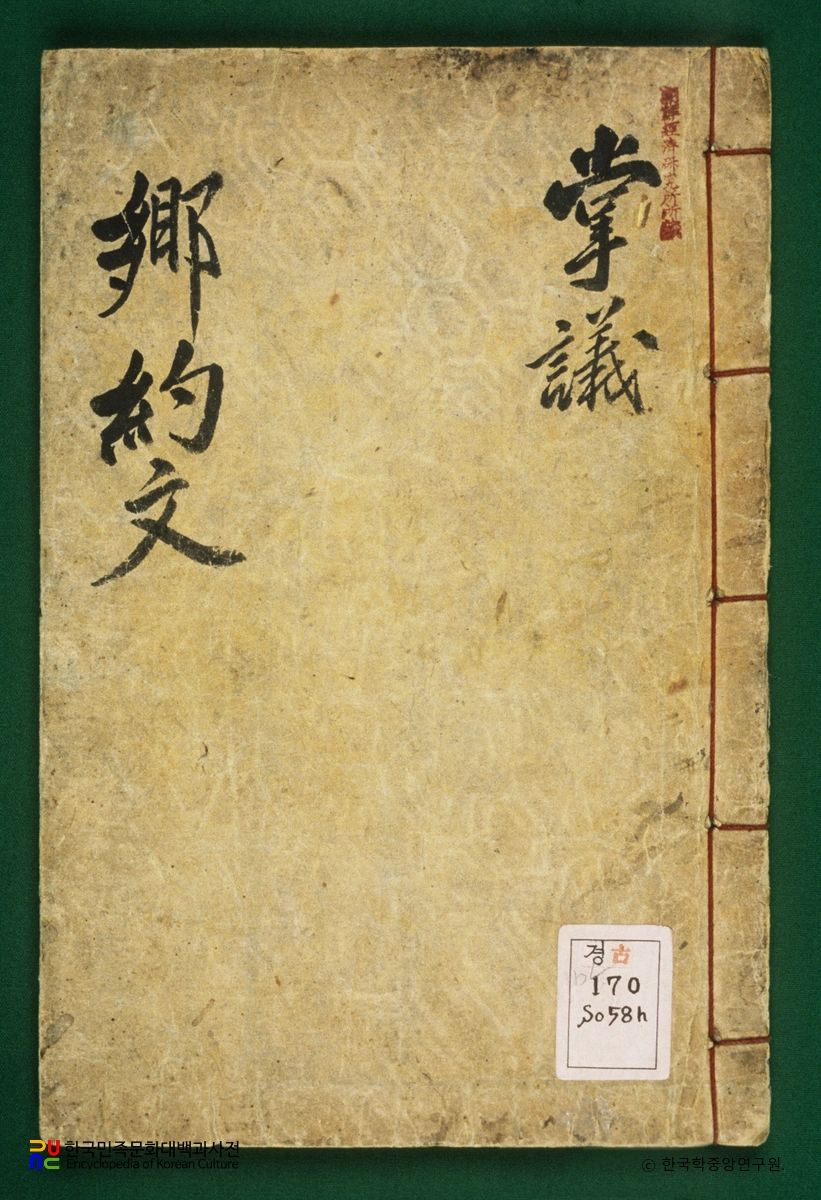 掌議
鄕約文
경 古
170
So58h
한국민족문화대백과사전
Encyclopedia of Korean Culture
© 한국학중앙연구원